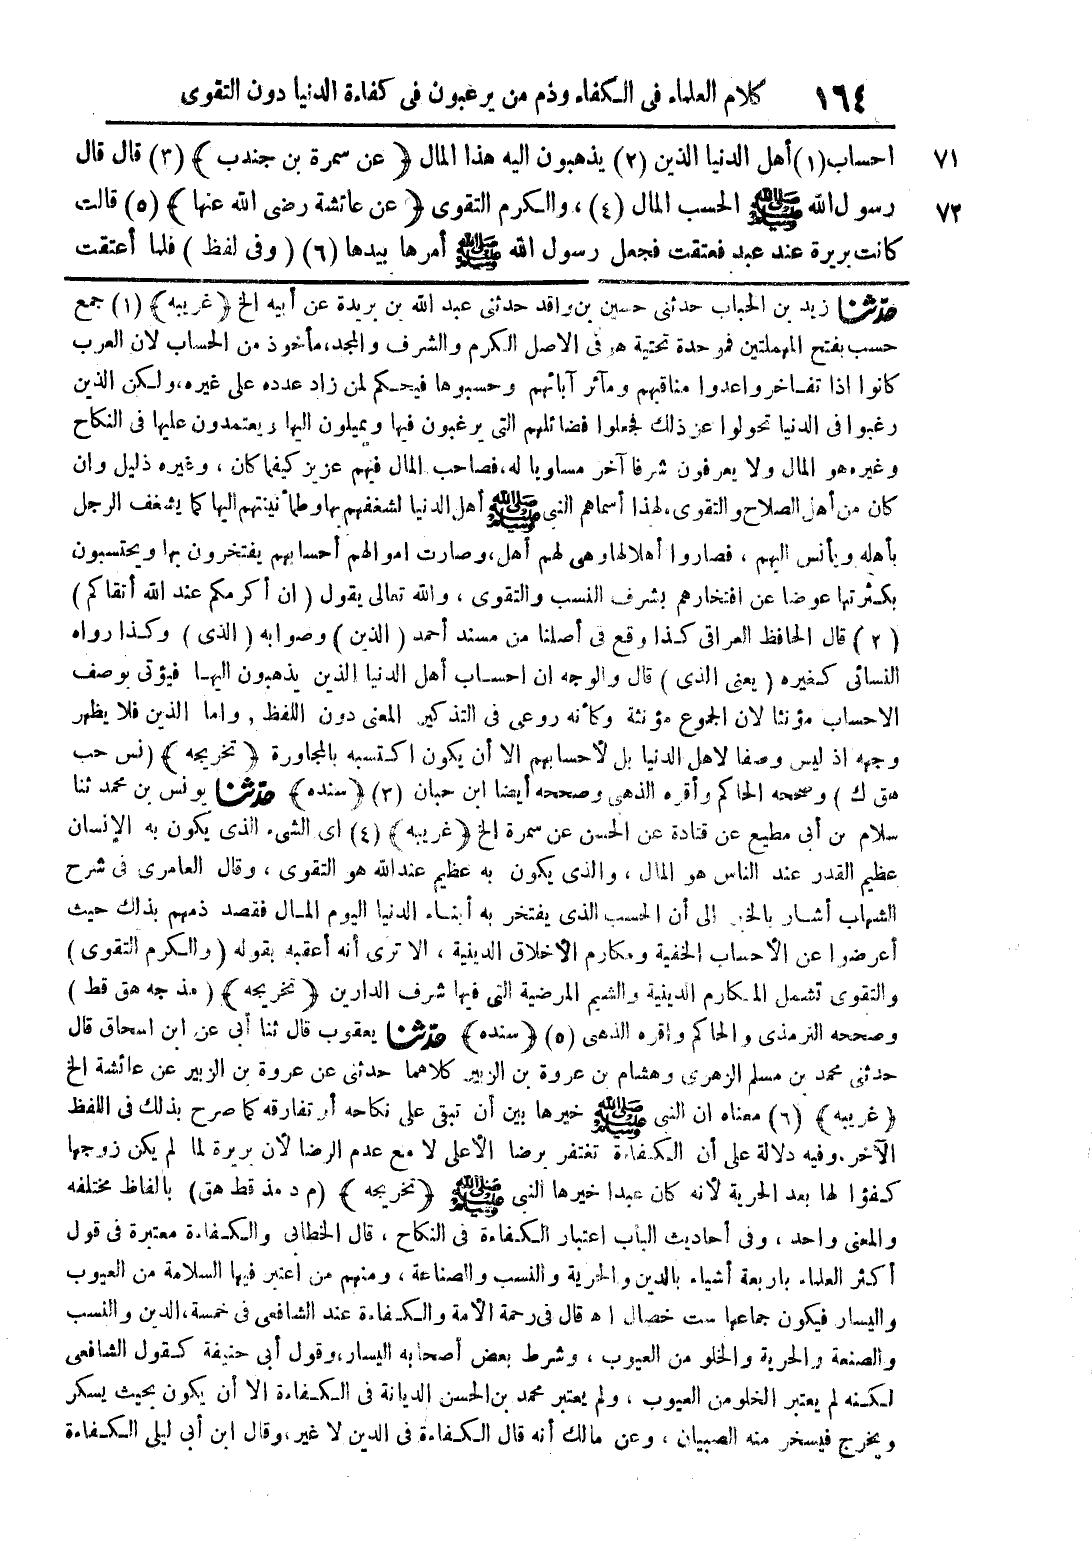 ١٦٤ كلام العلماء فى الكفاء وذم من يرغبون فى كفاءة الدنيا دون التقوى
٧١ احساب (١) أهل الدنيا الذين (٢) يذهبون اليه هذا المال ﴿ عن سمرة بن جندب ﴾ (٣) قال قال
٧٢ رسول الله ﷺ الحسب المال (٤) ، والكرم التقوى ﴿ عن عائشة رضى الله عنها ﴾ (٥) قالت
كانت بريرة عند عبد فعتقت فجعل رسول الله ﷺ أمرها بيدها (٦) ( وفى لفظ ) فلما أعتقت
حدثنا زيد بن الحباب حدثنى حسين بن واقد حدثنى عبد الله بن بريدة عن أبيه الخ ﴿ غريبه ﴾ (١) جمع
حسب بفتح المهملتين فموحدة تحتية هو فى الاصل الكرم والشرف والمجد، مأخوذ من الحساب لان العرب
كانوا اذا تفاخروا عدوا مناقبهم ومآثر آبائهم وحسبوها فيحكم لمن زاد عدده على غيره، ولكن الذين
رغبوا فى الدنيا تحولوا عن ذلك فجعلوا فضائلهم التى يرغبون فيها ويميلون اليها ويعتمدون عليها فى النكاح
وغيره هو المال ولا يعرفون شرفا آخر مساويا له، فصاحب المال فيهم عزيز كيفما كان ، وغيره ذليل وان
كان من أهل الصلاح والتقوى، لهذا أسماهم النبى ﷺ أهل الدنيا لشغفهم بها وطمأنينتهم اليها كما يشغف الرجل
بأهله ويأنس اليهم ، فصاروا أهلا لها وهى لهم أهل، وصارت اموالهم أحسابهم يفتخرون بها ويحتسبون
بكثرتها عوضا عن افتخارهم بشرف النسب والتقوى ، والله تعالى يقول ( ان أكرمكم عند الله أتقاكم )
(٢) قال الحافظ العراقى كذا وقع فى أصلنا من مسند أحمد ( الذين ) وصوابه ( الذى ) وكذا رواه
النسائى كغيره ( يعنى الذى ) قال والوجه ان احساب أهل الدنيا الذين يذهبون اليها فيؤتى بوصف
الاحساب مؤنثا لان الجموع مؤنثة وكأنه روعى فى التذكير المعنى دون اللفظ ، واما الذين فلا يظهر
وجهه اذ ليس وصفا لاهل الدنيا بل لأحسابهم الا أن يكون اكتسبه بالمجاورة ﴿ تخريجه ﴾ ( نس حب
هق ك ) وصححه الحاكم وأقره الذهبى وصححه أيضا ابن حبان (٣) ﴿ سنده ﴾ حدثنا يونس بن محمد ثنا
سلام بن أبى مطيع عن قتادة عن الحسن عن سمرة الخ ﴿ غريبه ﴾ (٤) اى الشىء الذى يكون به الإنسان
عظيم القدر عند الناس هو المال ، والذى يكون به عظيم عند الله هو التقوى ، وقال العامرى فى شرح
الشهاب أشار بالخبر الى أن الحسب الذى يفتخر به أبناء الدنيا اليوم المال فقصد ذمهم بذلك حيث
أعرضوا عن الأحساب الخفية ومكارم الأخلاق الدينية ، الا ترى أنه أعقبه بقوله ( والكرم التقوى )
والتقوى تشمل المكارم الدينية والشيم المرضية التى فيها شرف الدارين ﴿ تخريجه ﴾ ( مذ جه هق قط )
وصححه الترمذى والحاكم واقره الذهبى (٥) ﴿ سنده ﴾ حدثنا يعقوب قال ثنا أبى عن ابن اسحاق قال
حدثنى محمد بن مسلم الزهرى وهشام بن عروة بن الزبير كلاهما حدثنى عن عروة بن الزبير عن عائشة الخ
﴿ غريبه ﴾ (٦) معناه ان النبى ﷺ خيرها بين أن تبقى على نكاحه أو تفارقه كما صرح بذلك فى اللفظ
الآخر. وفيه دلالة على أن الكفاءة تغتفر برضا الأعلى لا مع عدم الرضا لأن بريرة لما لم يكن زوجها
كفؤا لها بعد الحرية لأنه كان عبدا خيرها النبى ﷺ ﴿ تخريجه ﴾ (م د مذ قط هق) بالفاظ مختلفه
والمعنى واحد ، وفى أحاديث الباب اعتبار الكفاءة فى النكاح ، قال الخطابى والكفاءة معتبرة فى قول
أكثر العلماء باربعة أشياء بالدين والحرية والنسب والصناعة ، ومنهم من اعتبر فيها السلامة من العيوب
واليسار فيكون جماعها ست خصال اه قال فى رحمة الأمة والكفاءة عند الشافعى فى خمسة، الدين والنسب
والصنعة والحرية والخلو من العيوب ، وشرط بعض أصحابه اليسار، وقول أبى حنيفة كقول الشافعى
لكنه لم يعتبر الخلو من العيوب ، ولم يعتبر محمد بن الحسن الديانة فى الكفاءة الا أن يكون بحيث يسكر
ويخرج فيسخر منه الصبيان ، وعن مالك أنه قال الكفاءة فى الدين لا غير، وقال ابن أبى ليلى الكفاءة